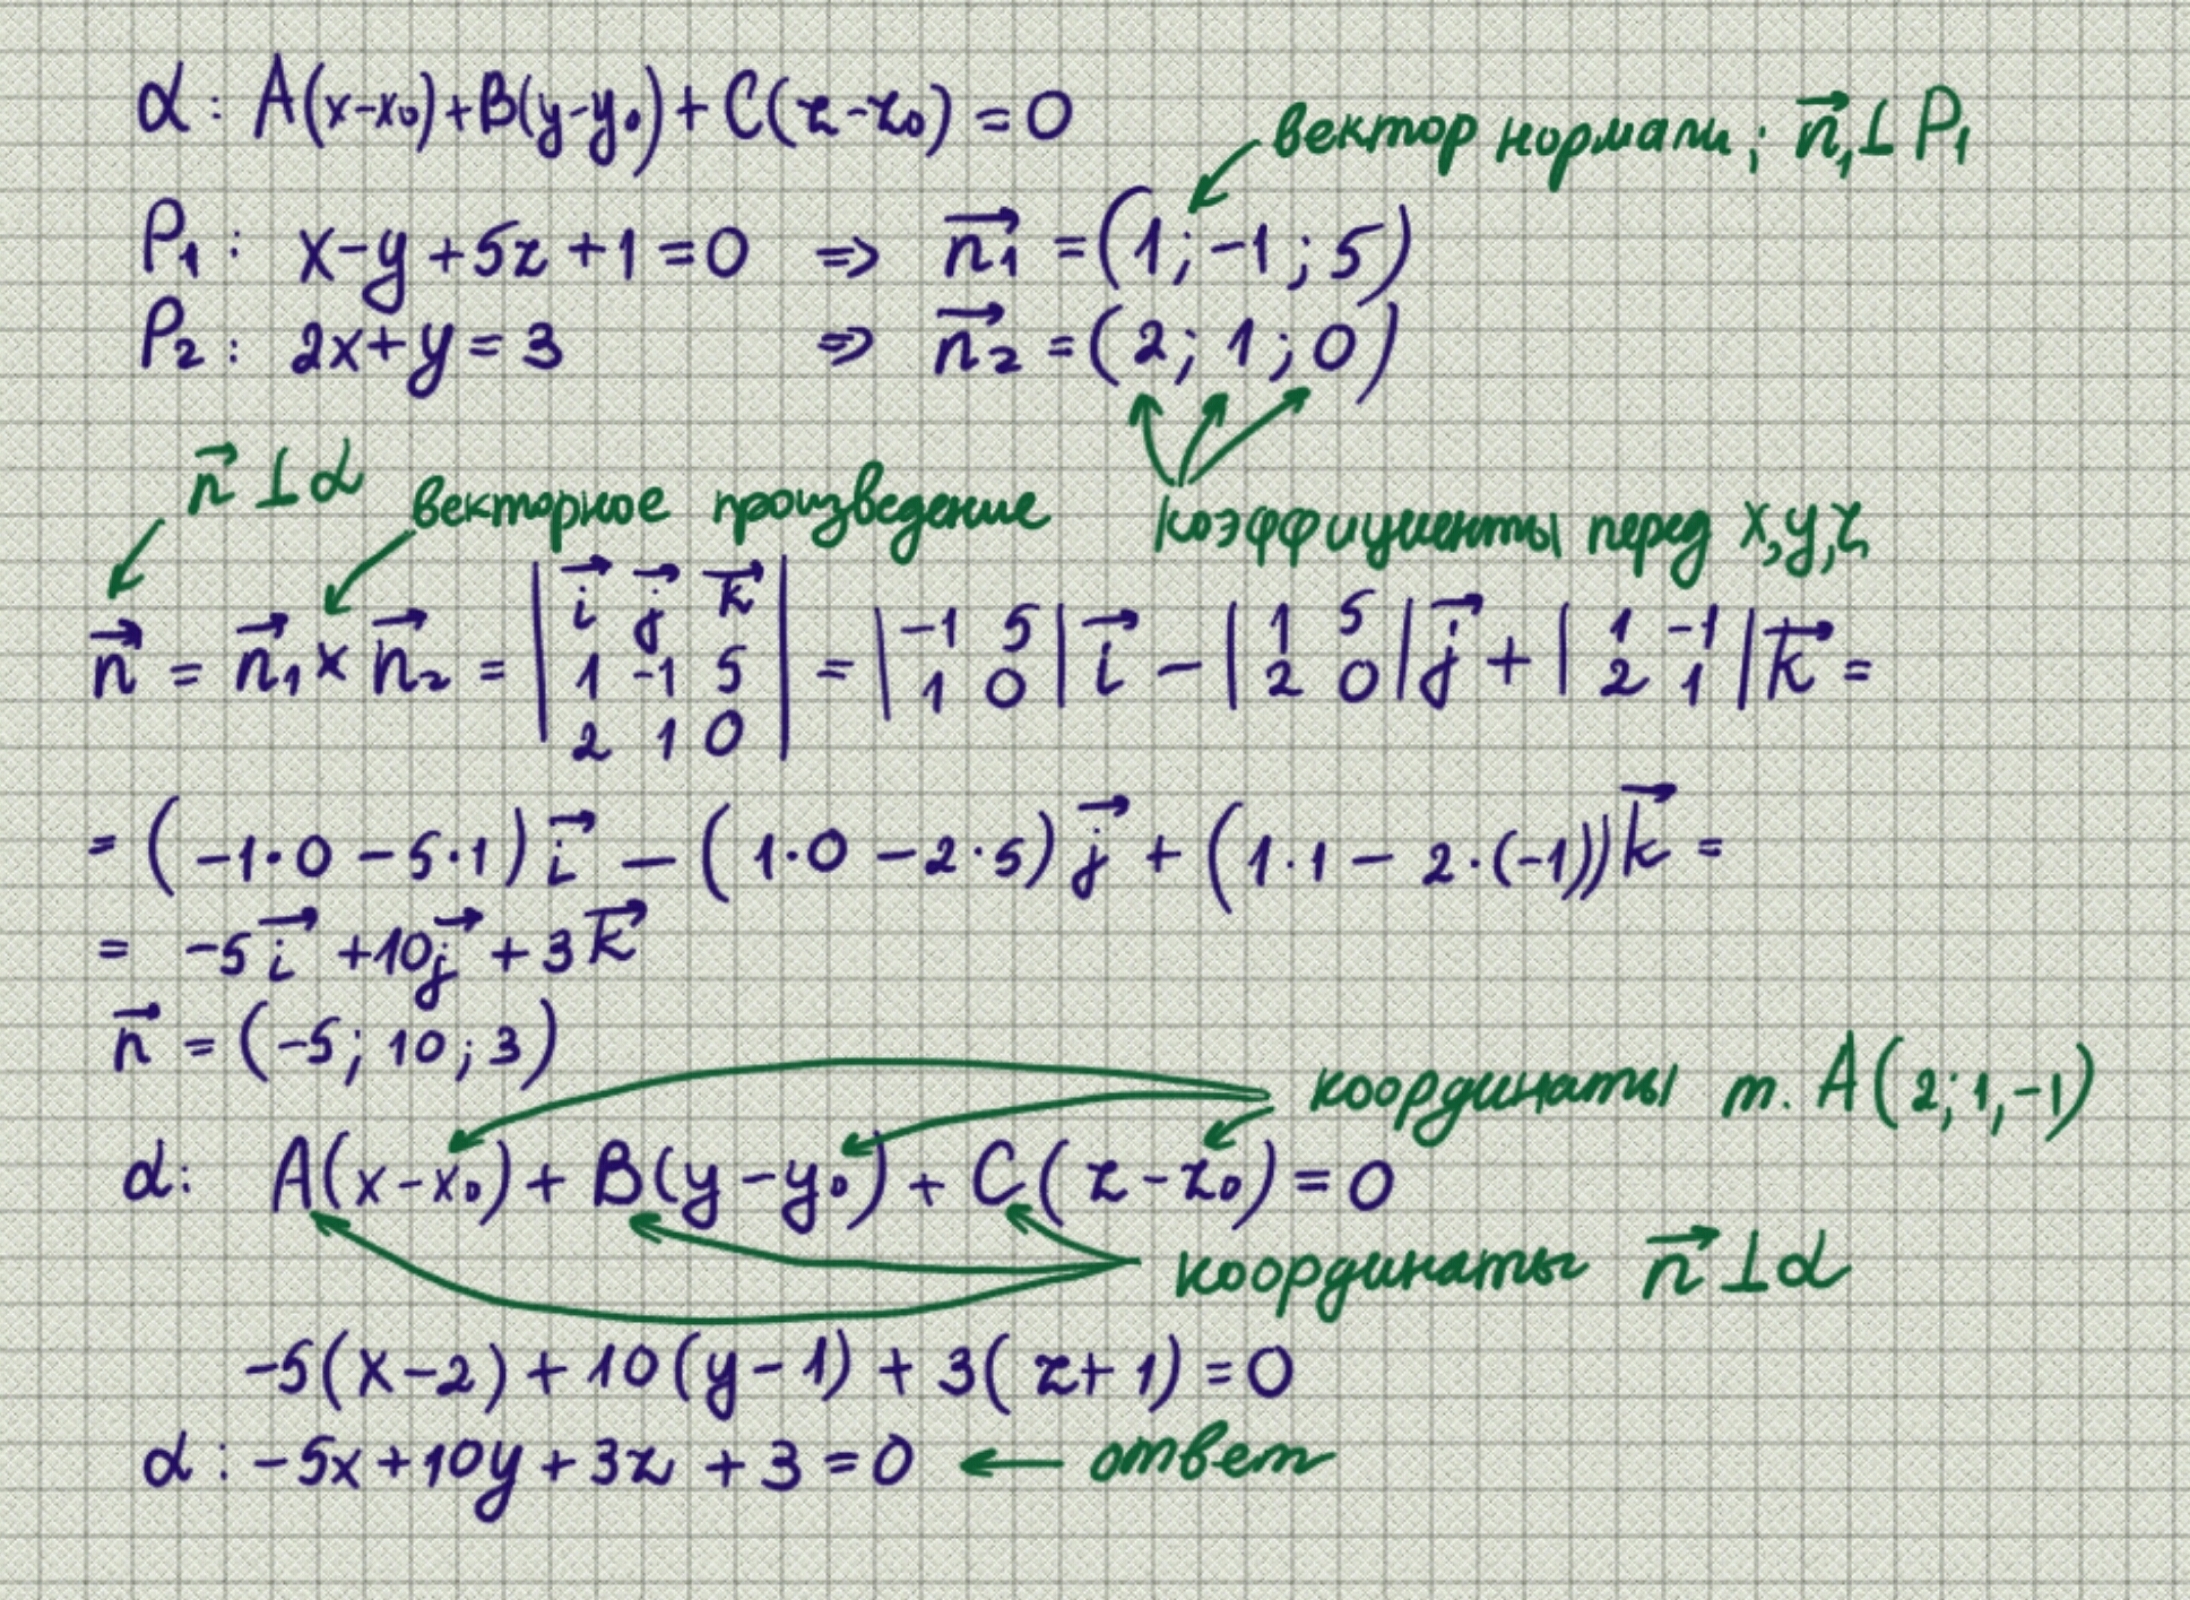 α: A(x-x₀)+B(y-y₀)+C(z-z₀)=0
вектор нормали; n⃗₁⊥P₁
P₁: x-y+5z+1=0 => n⃗₁=(1;-1;5)
P₂: 2x+y=3 => n⃗₂=(2;1;0)
n⃗⊥α
векторное произведение
коэффициенты перед x,y,z
n⃗ = n⃗₁×n⃗₂ = |i⃗ j⃗ k⃗; 1 -1 5; 2 1 0| = |-1 5; 1 0| i⃗ - |1 5; 2 0| j⃗ + |1 -1; 2 1| k⃗ =
= (-1·0-5·1)i⃗ - (1·0-2·5)j⃗ + (1·1-2·(-1))k⃗ =
= -5i⃗+10j⃗+3k⃗
n⃗ = (-5;10;3)
координаты т. A(2;1,-1)
α: A(x-x₀)+B(y-y₀)+C(z-z₀)=0
координаты n⃗⊥α
-5(x-2)+10(y-1)+3(z+1)=0
α: -5x+10y+3z+3=0 ← ответ